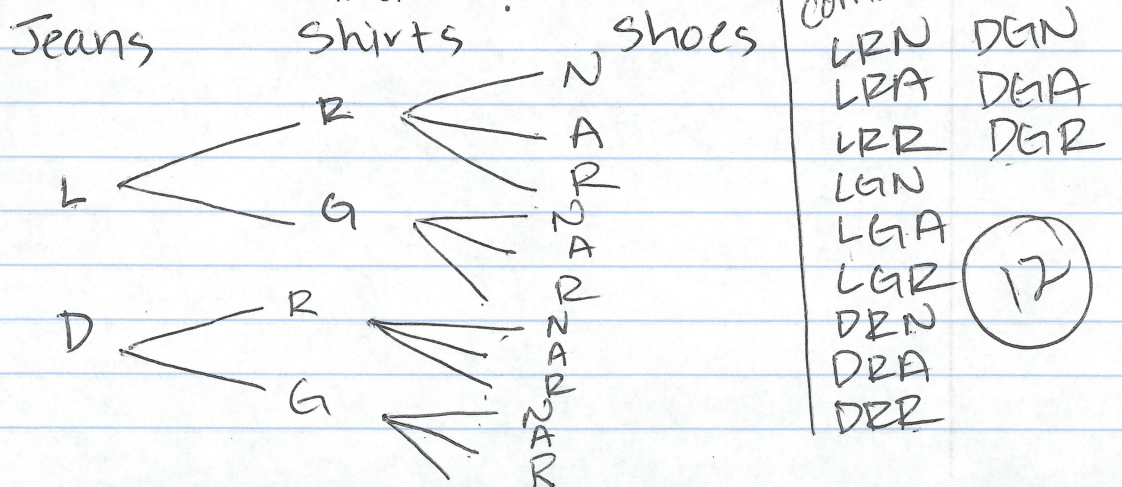 Jeans Shirts Shoes
L
D
R
G
R
G
N
A
R
N
A
R
N
A
R
N
A
R
LRN DGN
LRA DGA
LRR DGR
LGN
LGA
LGR
DRN
DRA
DRR
12